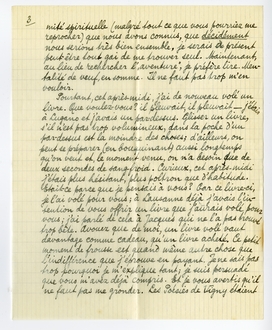 3
mité spirituelle (malgré tout ce que vous pourriez me
reprocher) que nous avons connus, que décidément
nous serions très bien ensemble, je serais à présent
peut-être tout gaî de me trouver seul. Maintenant,
au lieu de rechercher l'aventure, je préfère lire. Men-
talité de veuf, en somme. Il ne faut pas trop m'en
vouloir.
Pourtant, cet après-midi, j'ai de nouveau volé un
livre. Que voulez-vous? il pleuvait, il pleuvait — j'étais
à Lugano et j'avais un pardessus. Glisser un livre,
s'il n'est pas trop volumineux, dans la poche d'un
pardessus est la moindre des choses; d'ailleurs, on
peut se préparer (en bouquinant) aussi longtemps
qu'on veut et, le moment venu, on n'a besoin que de
deux secondes de sang-froid. Curieux, cet après-midi
j'étais plus hésitant, plus poltron que d'habitude.
Était-ce parce que je pensais à vous? Car ce livre-ci,
je l'ai volé pour vous; à Lausanne déjà j'avais l'in-
tention de vous offrir un livre que j'aurais volé pour
vous; j'ai parlé de cela à Jacques qui ne l'a pas trouvé
trop bête. Avouez que de moi, un livre volé vaut
davantage comme cadeau, qu'un livre acheté. Ce petit
moment de frousse est quand même autre chose que
l'indifférence que j'éprouve en payant. Je ne sais pas
trop pourquoi je m'explique tant; je suis persuadé
que vous m'avez déjà compris. Et je vous avertis qu'il
ne faut pas me gronder. Les Poésies de Vigny étaient